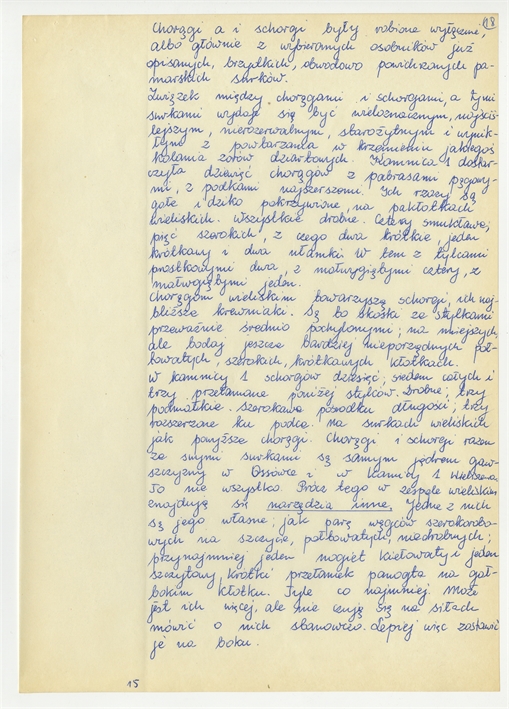 18
Chorągi a i schorgi były robione wyłącznie,
albo głównie z wybieranych osobników już
opisanych, brzydkich, obwodowo powichrzonych pa-
marskich surków.
Związek między chorągami i schorgami, a tymi
surkami wydaje się być wieloznacznym, najściś-
lejszym, nierozerwalnym, starożytnym i wynik-
łym z powtarzania w krzemieniu jakiegoś
kolania zorów dziartowych. Kamnica 1 dostar-
czyła dziewięć chorągów z pabrasami pęgowy-
mi, z podkami najszerszemi. Ich rzazy są
gołe i dziko pokrzywione, na pakłotkach
wieliskich. Wszystkie drobne. Cztery smukławe,
pięć szerokich, z czego dwa krótkie, jeden
krótkawy i dwa ułamki. W tem z tylcami
prostkowymi dwa, z małowygiętymi cztery, z
małowgiętymi jeden.
Chorągom wieliskim towarzyszą schorgi, ich naj-
bliższe krewniaki. Są to skośki ze stylkami
przeważnie średnio pochylonymi; na mniejszych,
ale bodaj jeszcze bardziej nieporządnych poł-
bowatych, szerokich, krótkawych kłotkach.
W kamnicy 1 schorgów dziesięć; siedem całych i
trzy przełamane poniżej stylców. Drobne; trzy
podmałkie. Szerokawe pośrodku długości; trzy
rozszerzane ku podcą. Na surkach wieliskich
jak powyższe chorągi. Chorągi i schorgi razem
ze swymi surkami są samym jądrem gaw-
szczyzny w Ossówce i w Kamnicy 1 Wieliszewa.
To nie wszystko. Prócz tego w zespole wieliskim
znajdują się narzędzia inne. Jedne z nich
są jego własne; jak parę węgców szerokorobo-
wych na szczycie, połbowatych, nadrobnych;
przynajmniej jeden nogiet kiełowaty i jeden
szczytowy, krótki przełamek panogta na gał-
bokim kłotku. Tyle co najmniej. Może
jest ich więcej, ale nie czuję się na siłach
mówić o nich stanowczo. Lepiej więc zostawić
je na boku.
15